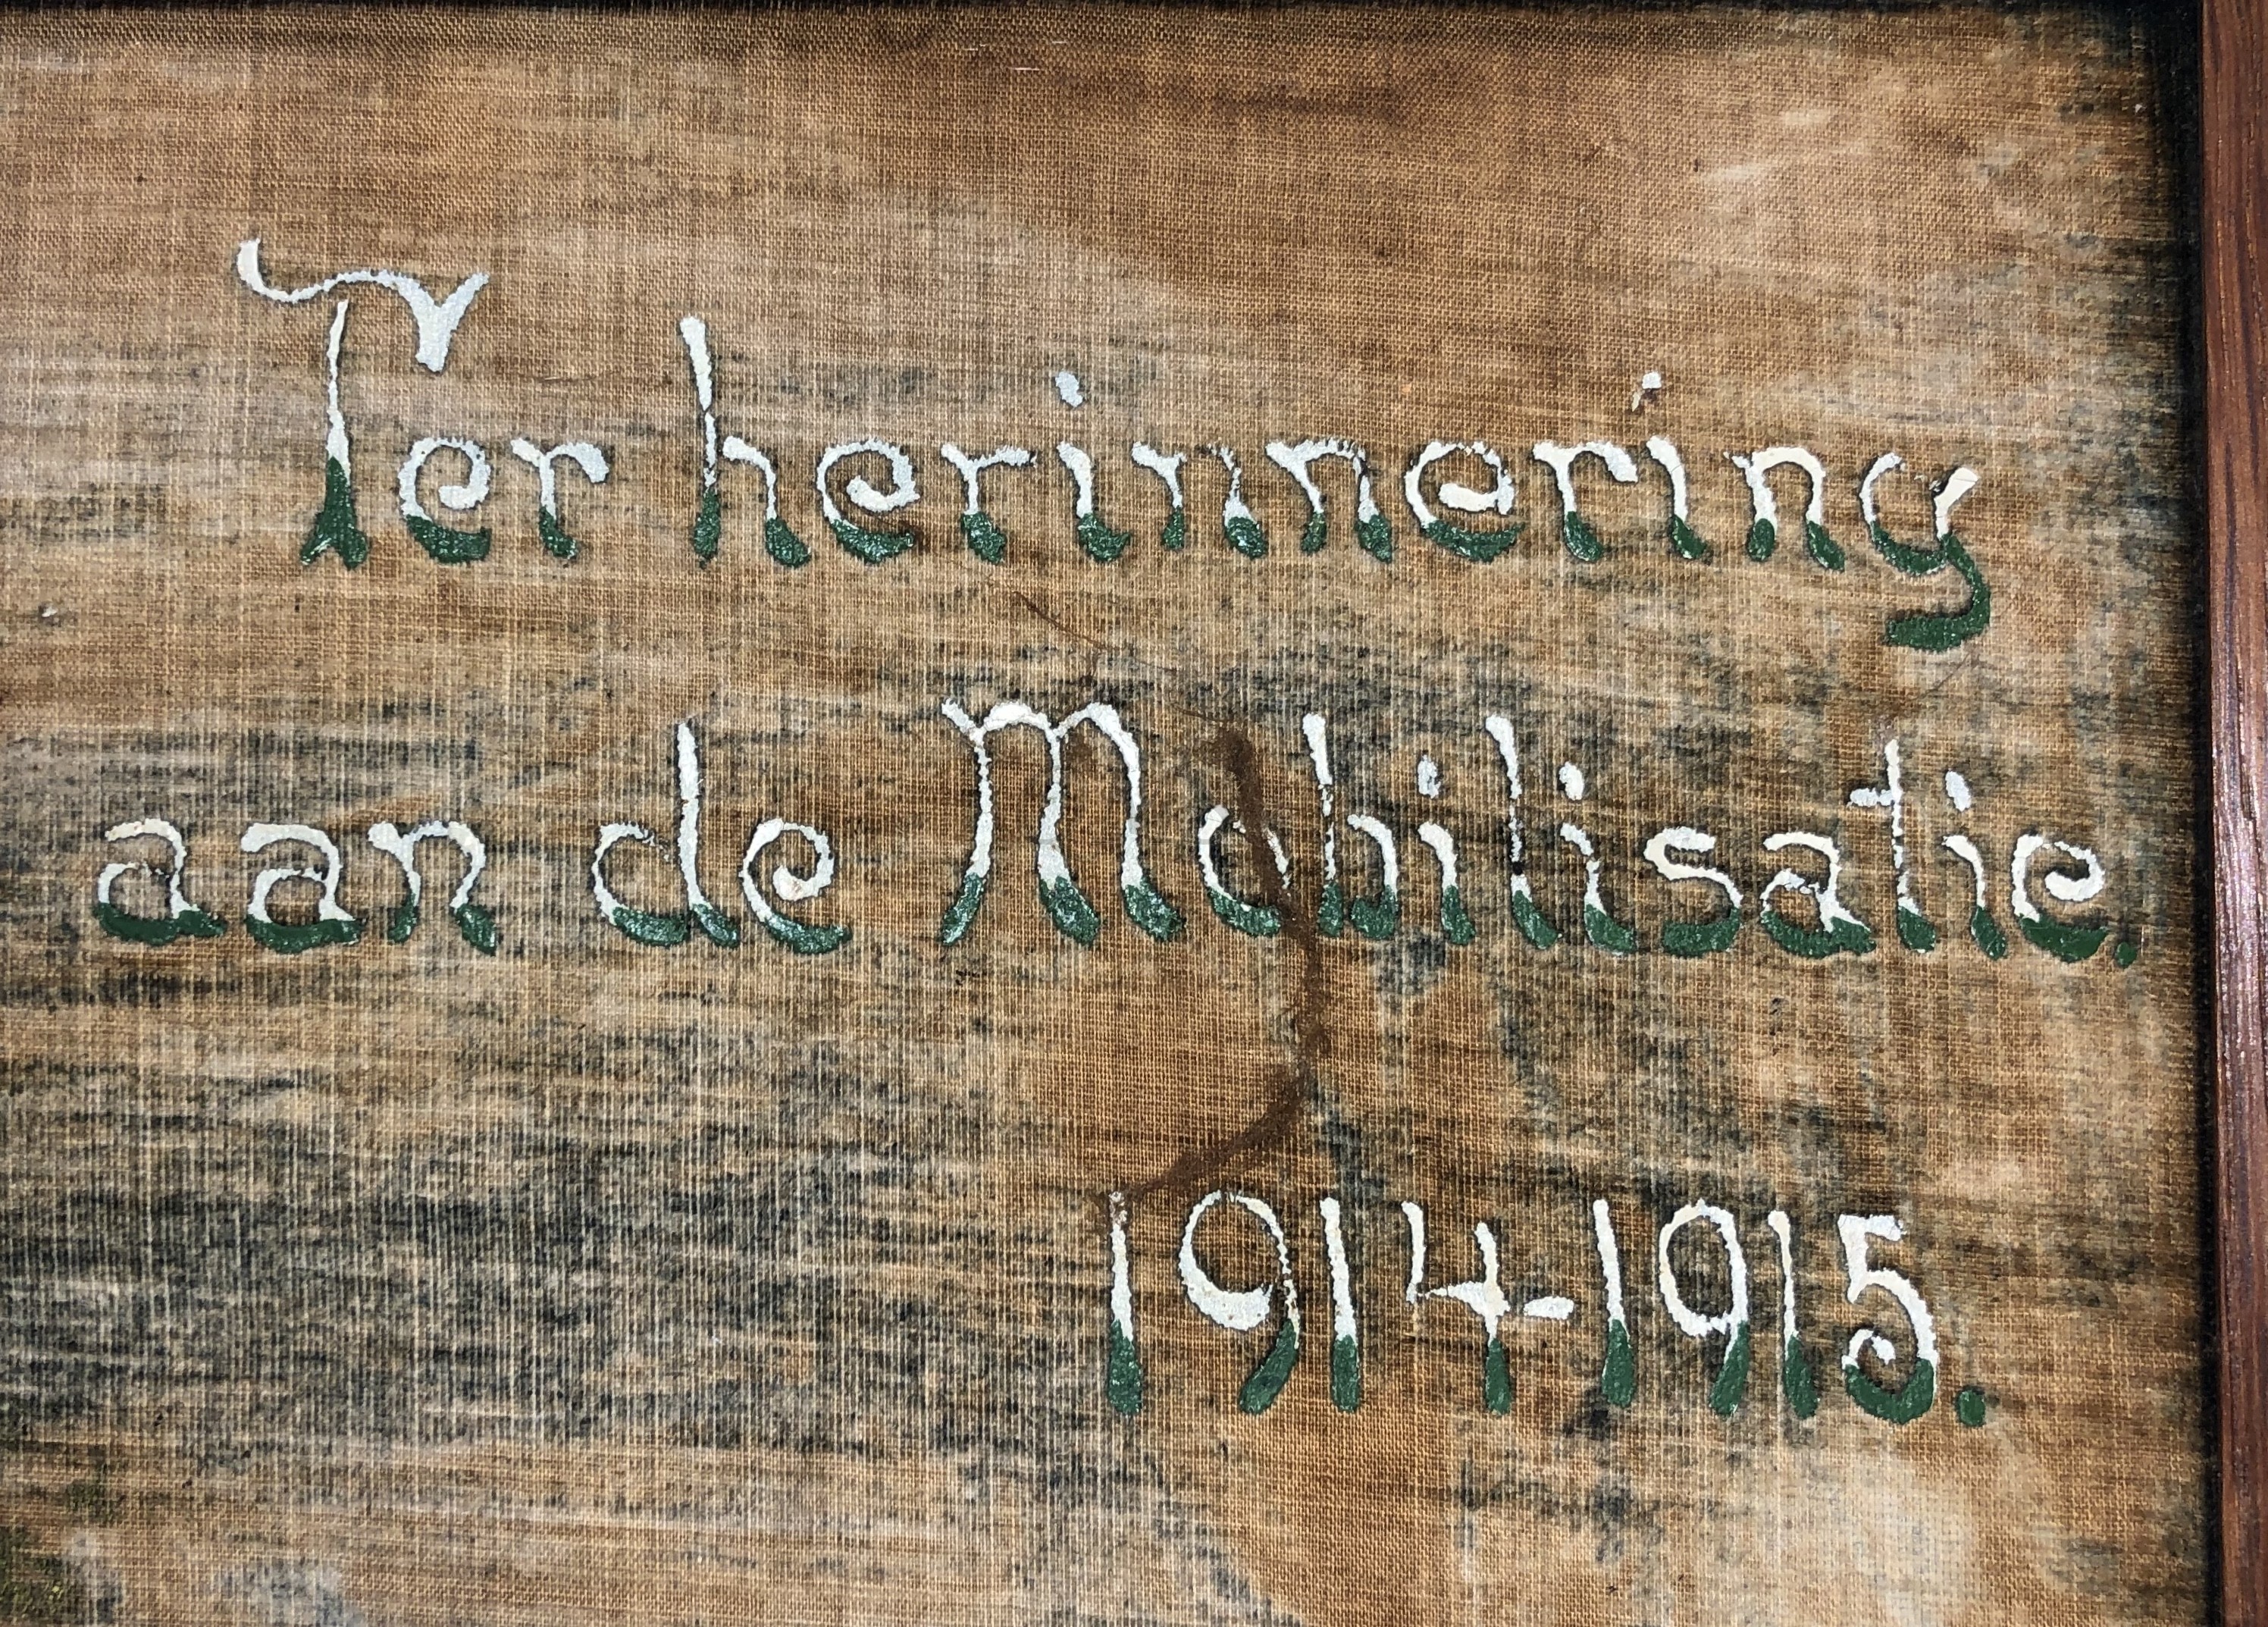 Ter herinnering
aan de Mobilisatie.
1914-1915.